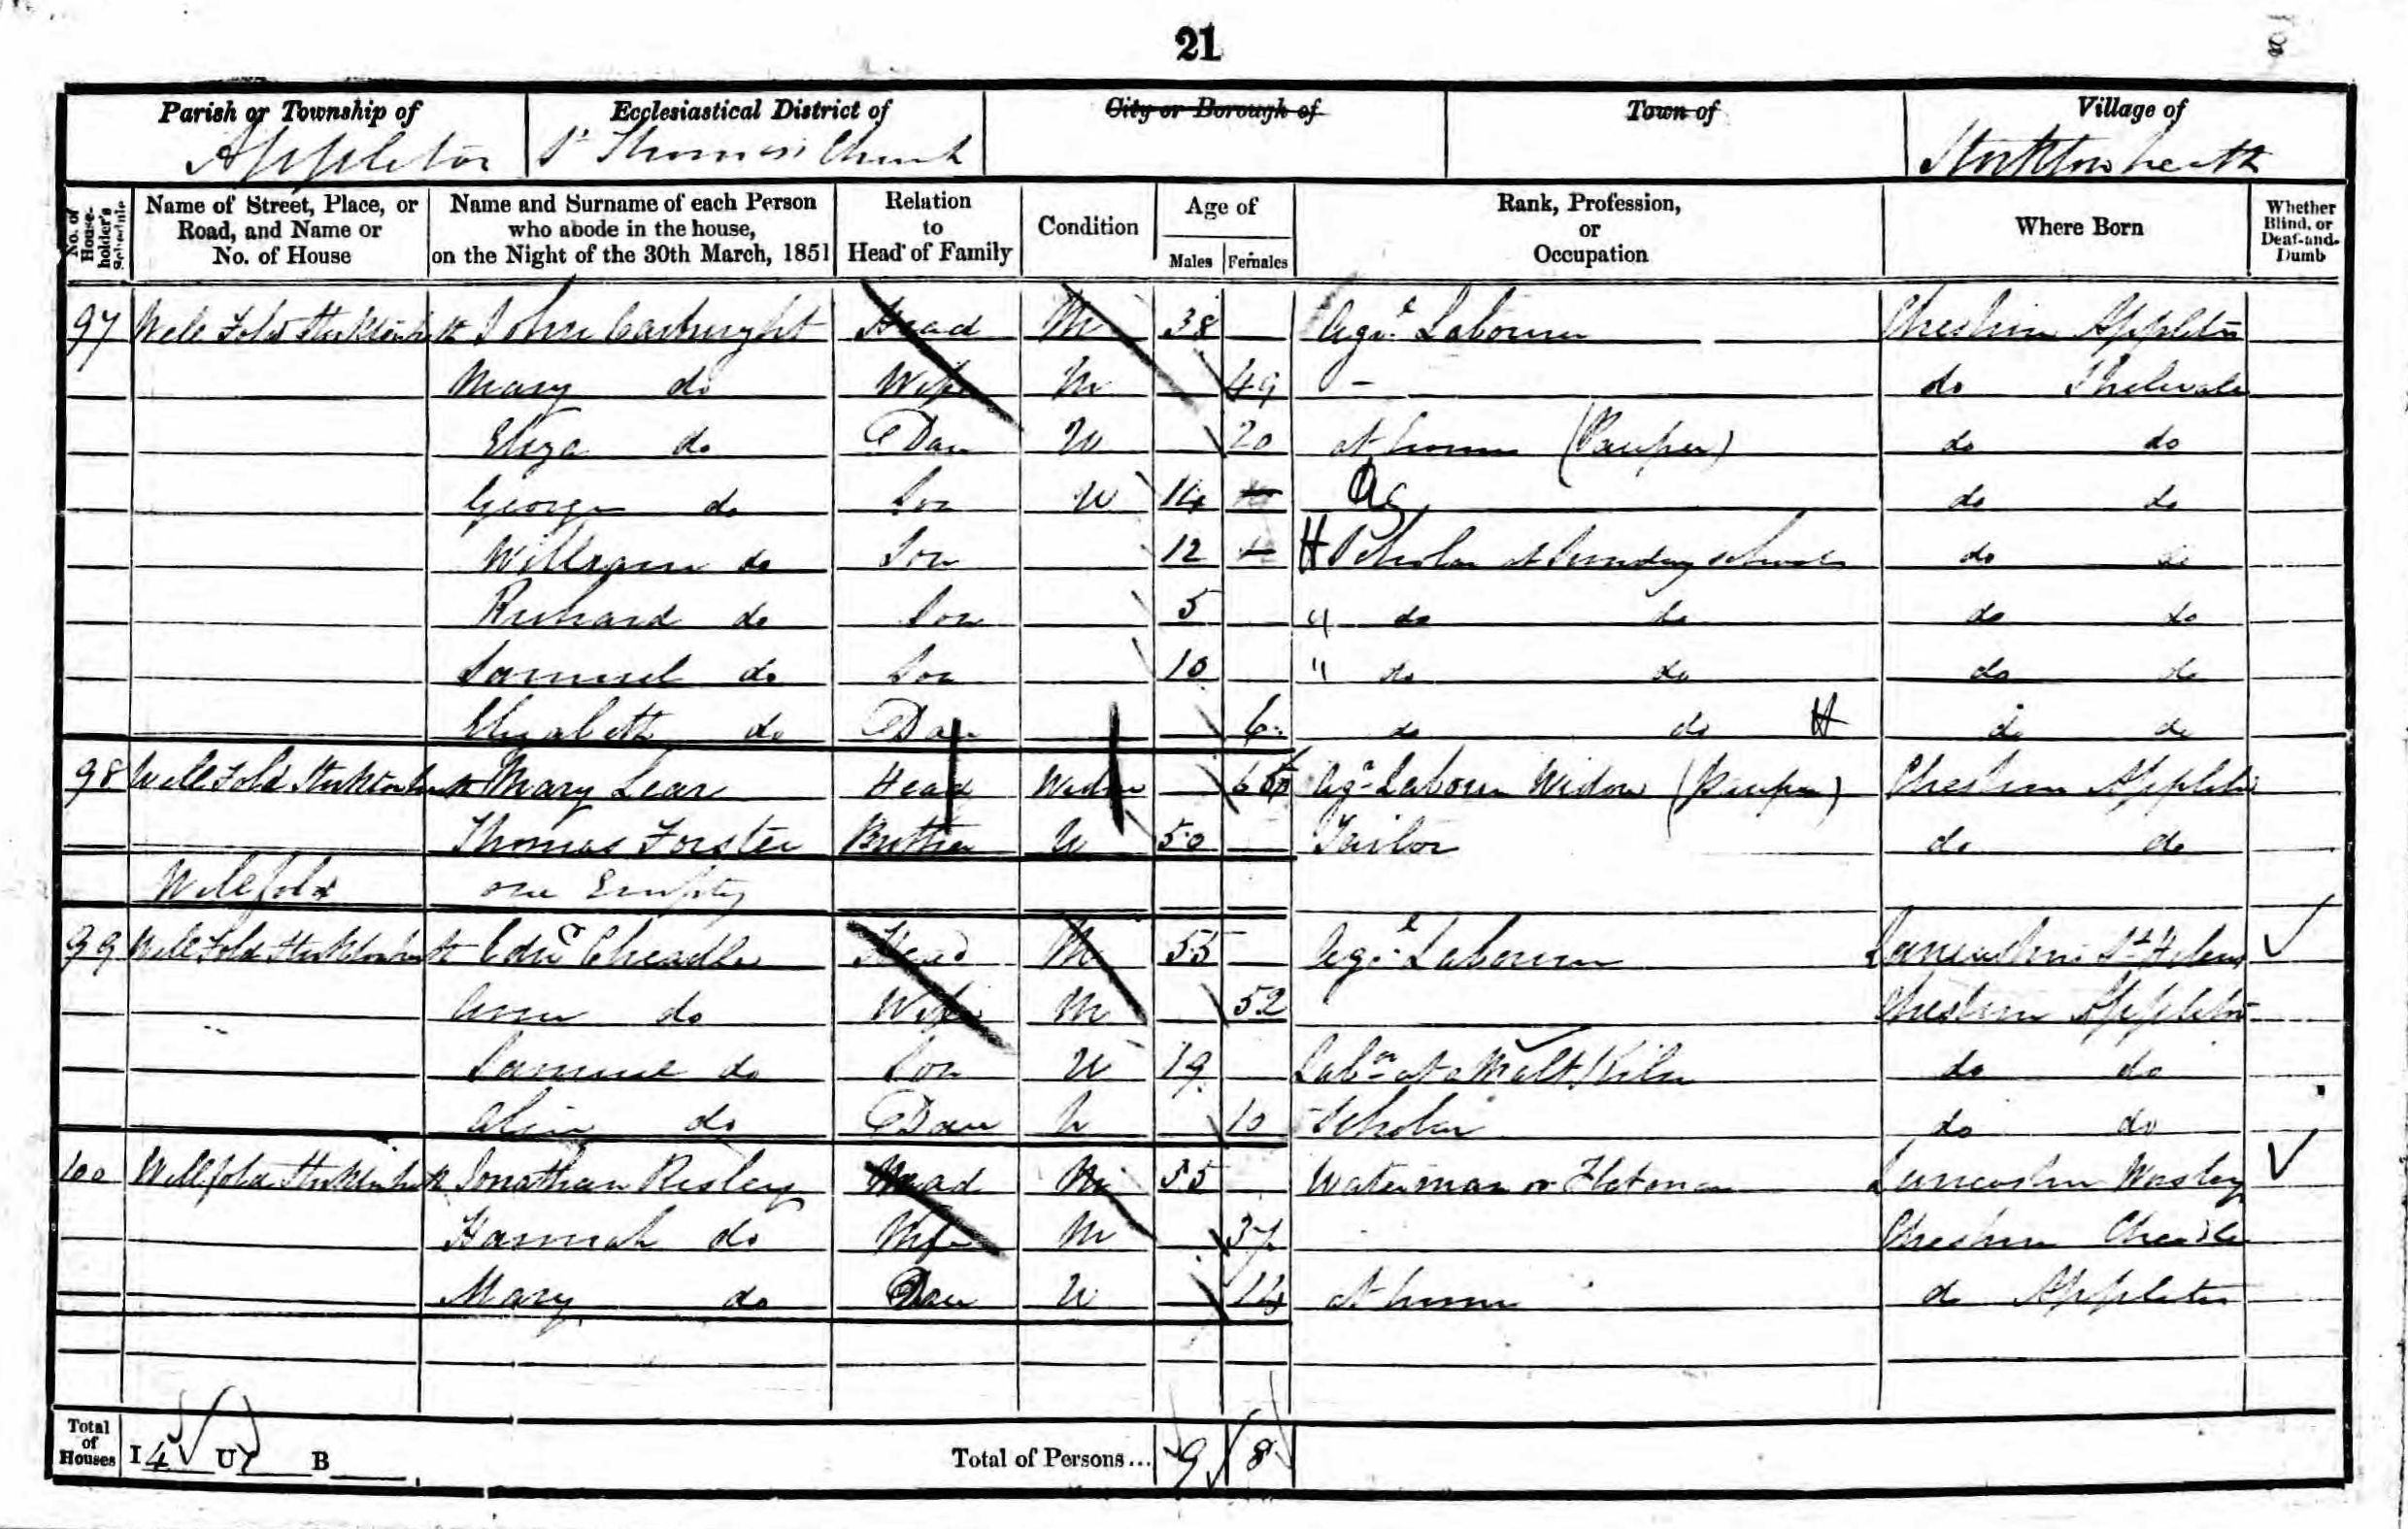 21
Parish or Township of Ecclesiastical District of City or Borough of Town of Village of
Appleton St Thomas's Church Stocktonheath
No. of Householder's Schedule Name of Street, Place, or Road, and Name or No. of House Name and Surname of each Person who abode in the house, on the Night of the 30th March, 1851 Relation to Head of Family Condition Age of Males Females Rank, Profession, or Occupation Where Born Whether Blind, or Deaf-and-Dumb
97 Well Fold Stocktonheath John Cartwright Head M 38 Agrl Labourer Cheshire Appleton
Mary do Wife M 49 - do Thelwall
Eliza do Dau U 20 at home (Pauper) do do
George do Son U 14 Ag do do
William do Son 12 H Scholar at Sunday schools do do
Richard do Son 5 " do do do do
Samuel do Son 10 " do do do do
Elizabeth do Dau 6 do do H do do
98 Well Fold Stocktonheath Mary Lear Head Widow Agl Labourer Widow (Pauper) Cheshire Appleton
Thomas Forster Brother U 50 Tailor do do
Wellfold one Empty
99 Well Fold Stocktonheath Edwd Cheadle Head M 55 Agrl Labourer Lancashire St Helens
Ann do Wife M 52 Cheshire Appleton
Samuel do Son U 19 Labor at a Malt Kiln do do
Alice do Dau U 10 Scholar do do
100 Wellfold Stocktonheath Jonathan Risley Head M 35 Waterman or Flatman Lancashire
Hannah do Wife M 37 Cheshire Cheadle
Mary do Dau U 14 at home do Appleton
Total of Houses I 4 U 1 B Total of Persons... 9 8